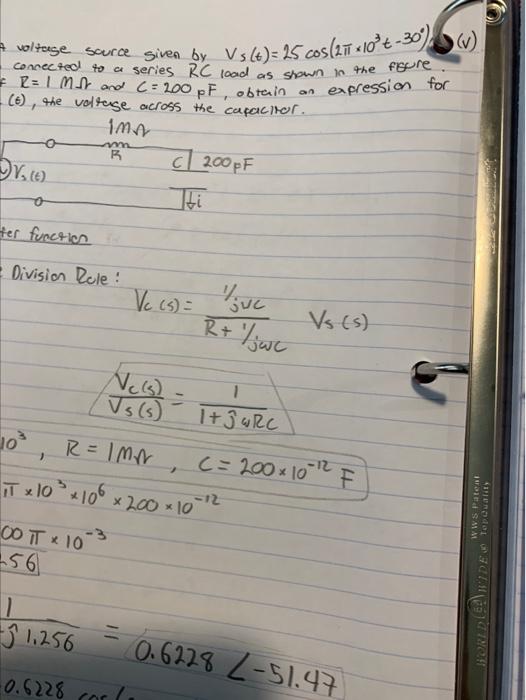 voltage source given by Vs(t) = 25 cos(2π×10³t-30°) (V)
connected to a series RC load as shown in the figure.
R = 1 MΩ and C = 200 pF, obtain an expression for
(t), the voltage across the capacitor.
1MΩ
R
C 200pF
Vs(t)
i
ter function
Division Rule:
Vc(s) = 1/jωC / R + 1/jωC Vs(s)
Vc(s) / Vs(s) = 1 / 1+jωRC
10³, R = 1MΩ, C = 200×10⁻¹² F
π×10³×10⁶×200×10⁻¹²
00 π × 10⁻³
256
1 / j1.256 = 0.6228 ∠-51.47
0.6228
WWS Patent
WORLD WIDE Top Quality